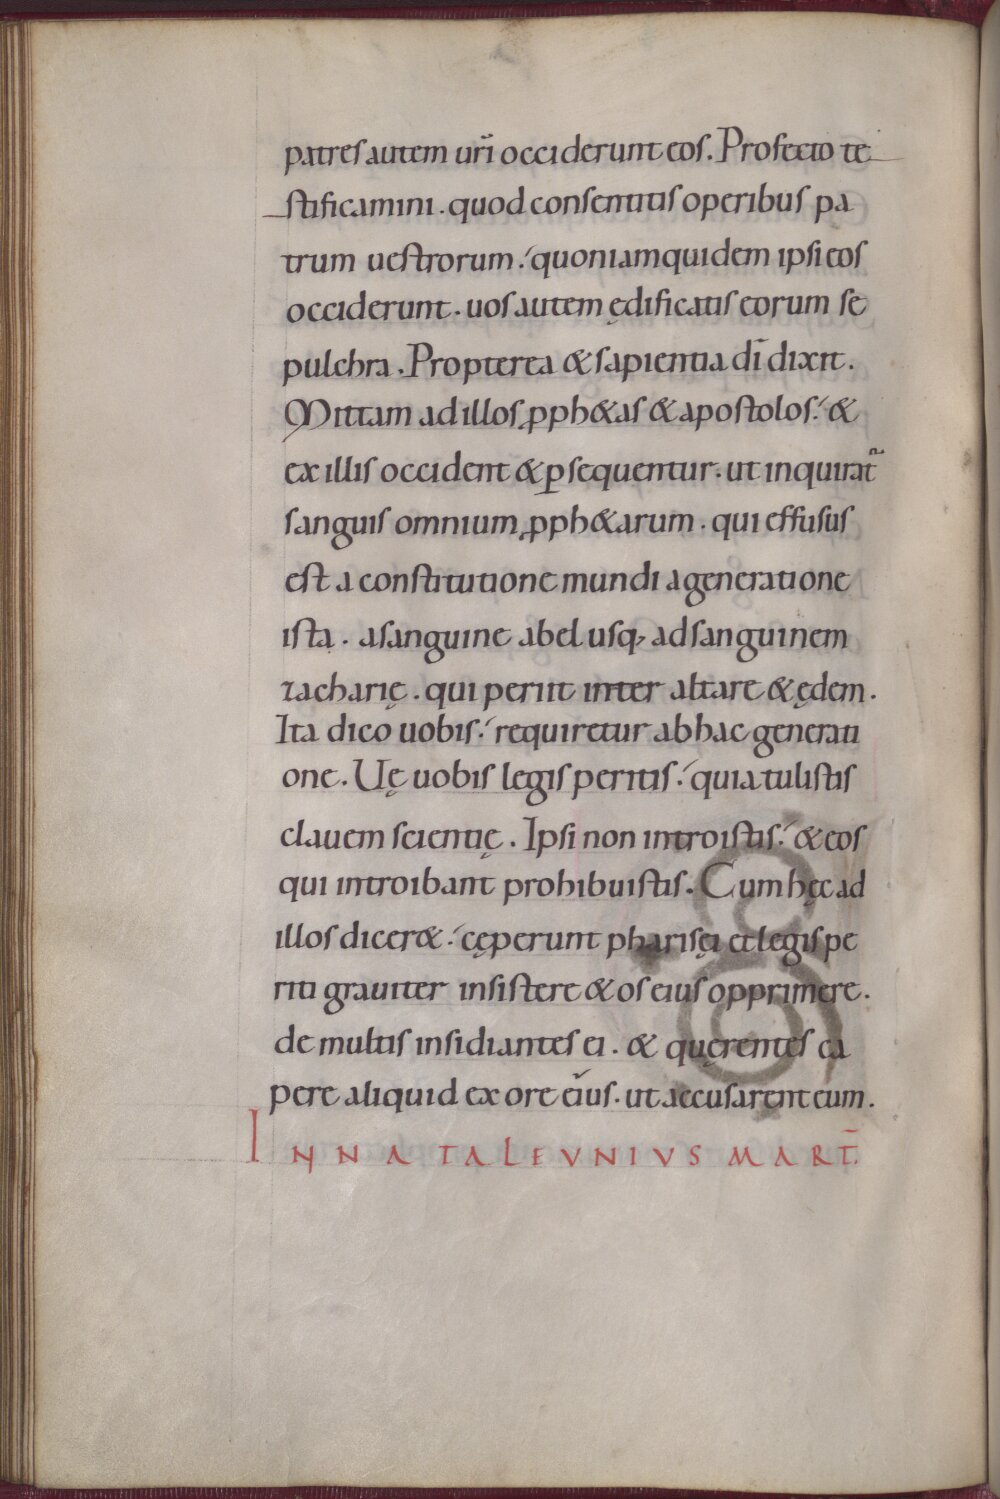 patres autem ur̄i occiderunt eos. Profecto te
stificamini. quod consentitis operibus pa
trum uestrorum. quoniam quidem ipsi eos
occiderunt. uos autem ędificatis eorum se
pulchra. Propterea & sapientia dī dixit.
Mittam ad illos ꝓph&as & apostolos. &
ex illis occident & ꝑsequentur. ut inquirat̃
sanguis omnium ꝓph&arum. qui effusus
est a constitutione mundi a generatione
ista. a sanguine abel usq, ad sanguinem
zacharię. qui periit inter altare & ędem.
Ita dico uobis. requiretur ab hac generati
one. Uę uobis legis peritis. quia tulistis
clauem scientię. Ipsi non introistis. & eos
qui introibant prohibuistis. Cum hęc ad
illos dicer&. cęperunt pharisęi et legis pe
riti grauiter insistere & os eius opprimere.
de multis insidiantes ei. & quęrentes ca
pere aliquid ex ore eius. ut accusarent eum.
IN NATALE UNIUS MART̄.